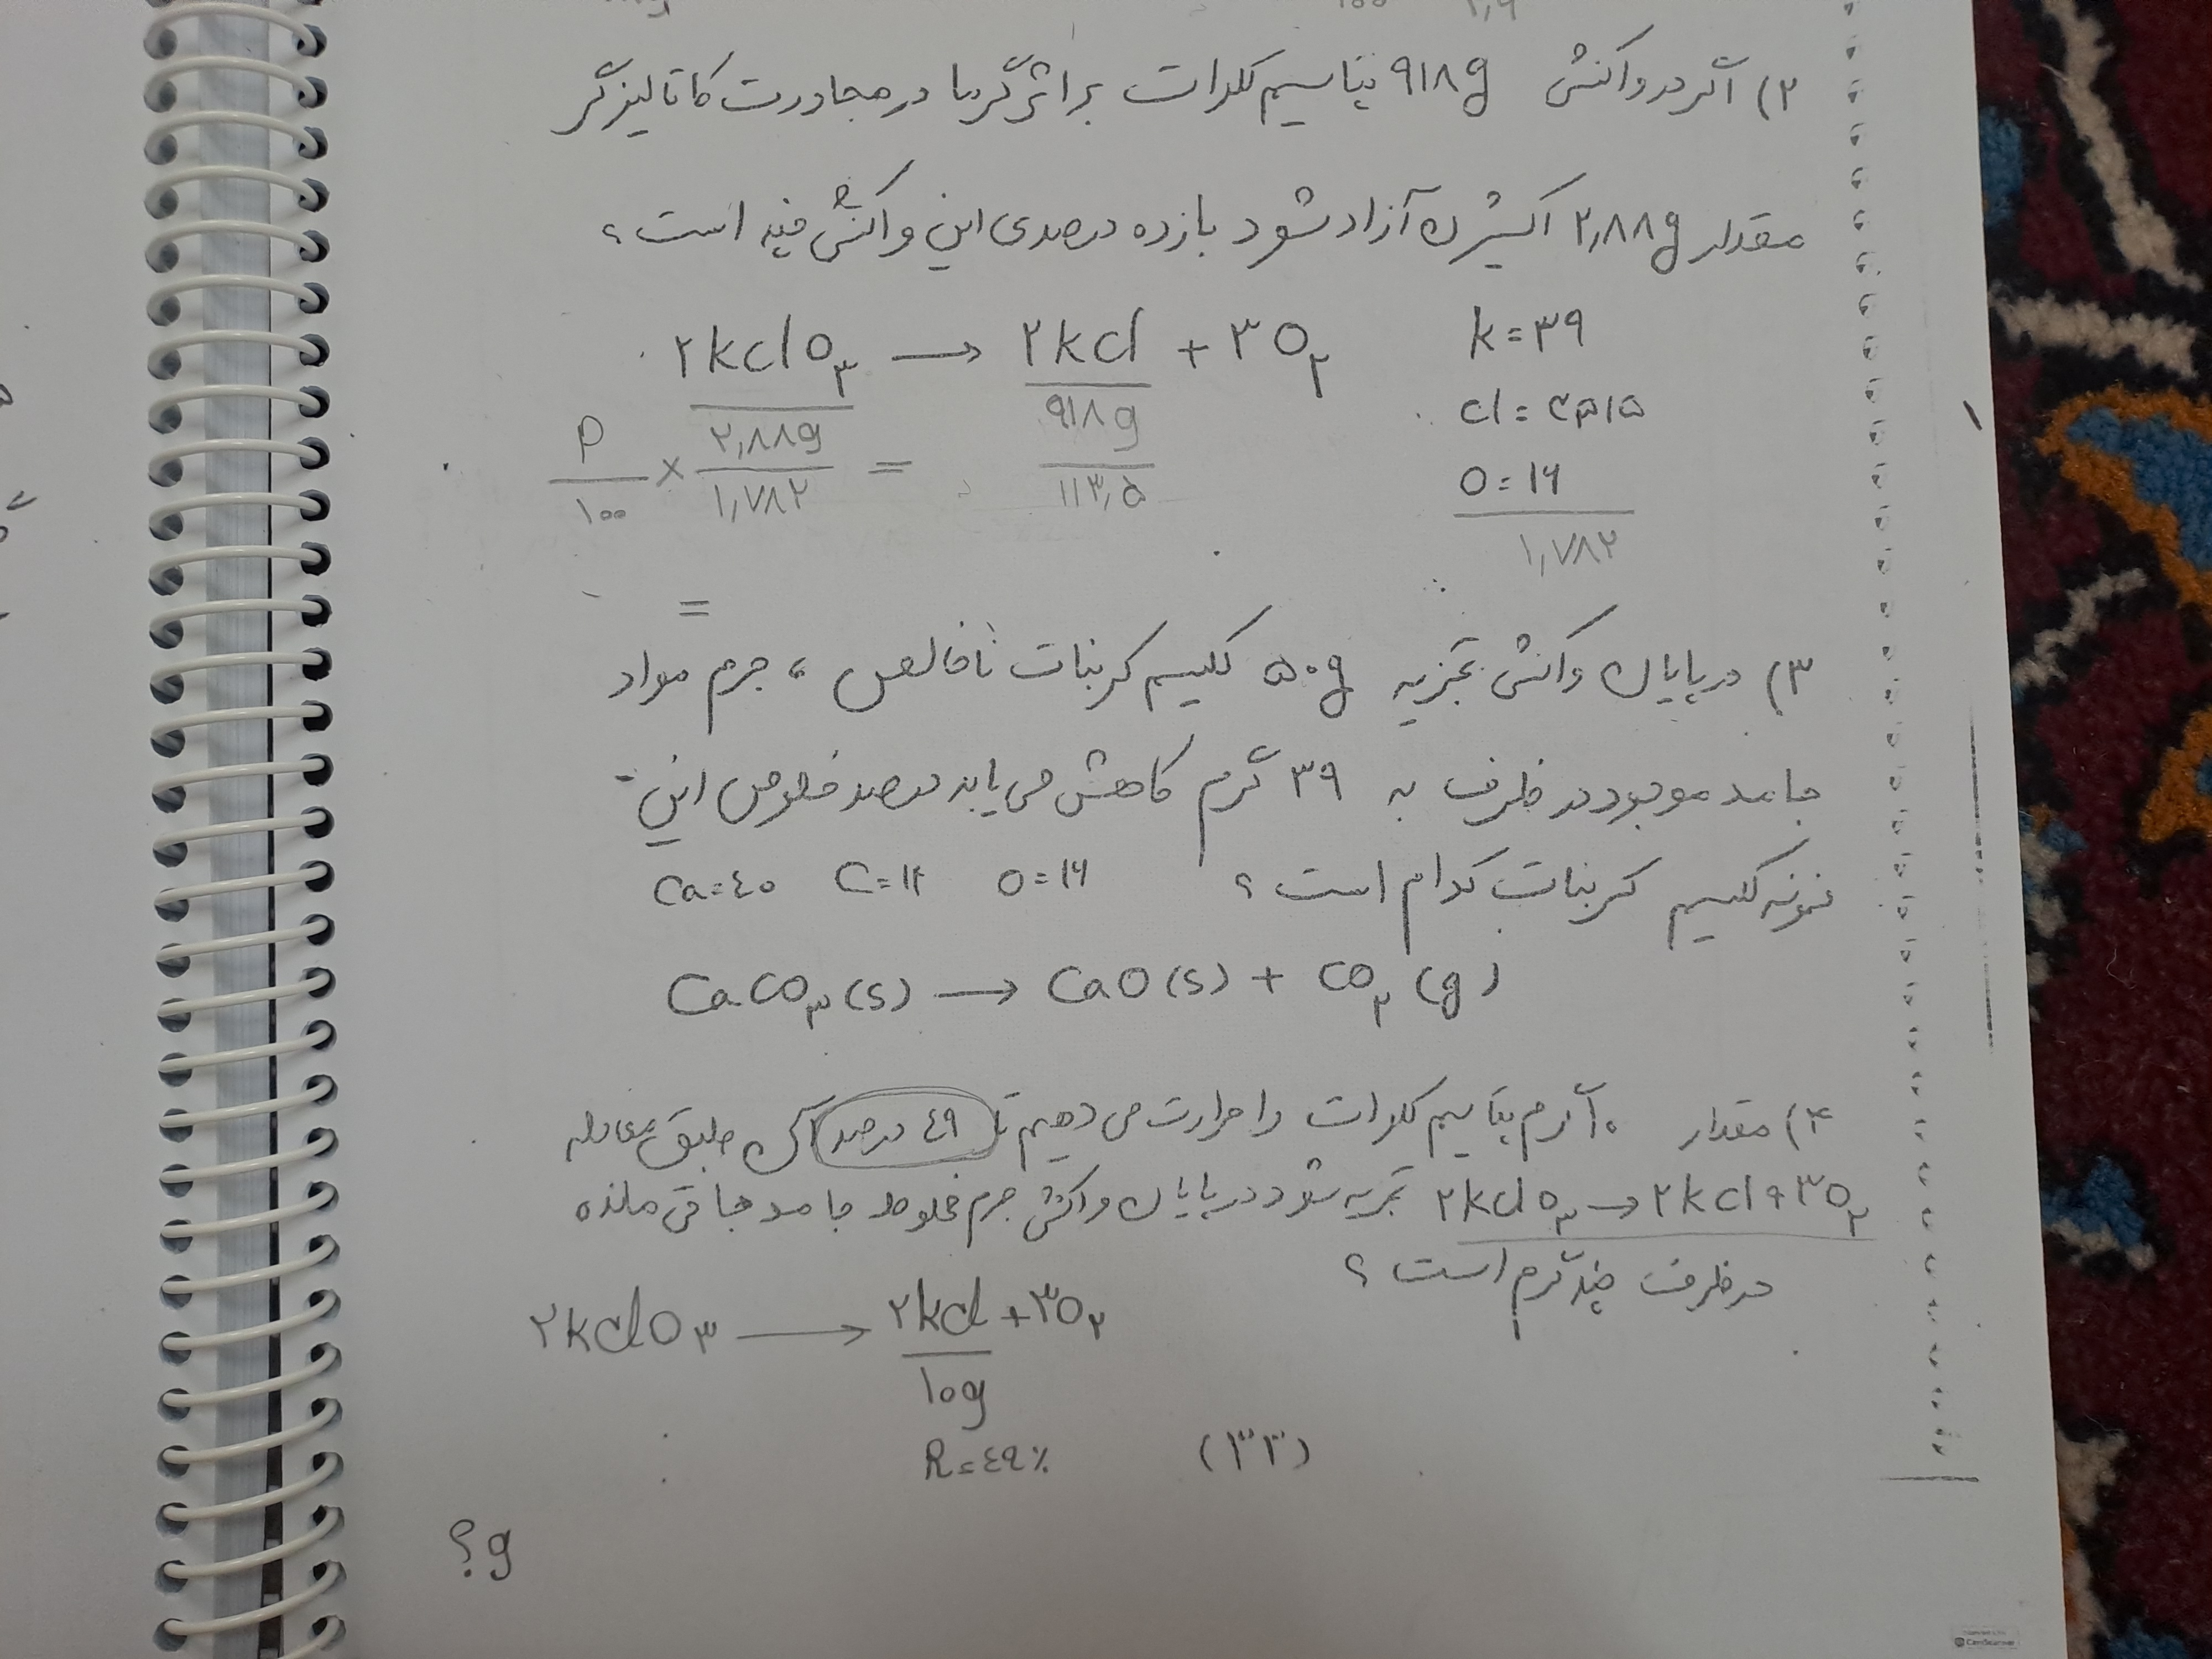 ۲) اگر در واکنش ۹۱۸g پتاسیم کلرات بر اثر گرما در مجاورت کاتالیزگر
مقدار ۲,۸۸g اکسیژن آزاد شود بازده درصدی این واکنش چند است؟
۲kclO۳ → ۲kcl + ۳O۲
k=۳۹
cl = ۳۵/۵
O=۱۶
۱,۷۸۲
P/۱۰۰ × ۲,۸۸g/۱,۷۸۲ = ۹۱۸g/۱۱۳,۵
=
۳) در پایان واکنش تجزیه ۵۰g کلسیم کربنات ناخالص، جرم مواد
جامد موجود در ظرف به ۳۹ گرم کاهش می یابد درصد خلوص این
نمونه کلسیم کربنات کدام است؟ O=۱۶ C=۱۲ Ca=٤۰
CaCO۳(s) → CaO(s) + CO۲(g)
۴) مقدار ۱۰گرم پتاسیم کلرات را حرارت می دهیم تا ٤۹ درصد آن طبق معادله
۲kclO۳ → ۲kcl+۳O۲ تجزیه شود در پایان واکنش جرم مخلوط جامد باقی مانده
در ظرف چند گرم است؟
۲kclO۳ → ۲kcl + ۳O۲
۱۰g
R=٤۹٪
(۳۳)
؟g
CamScanner